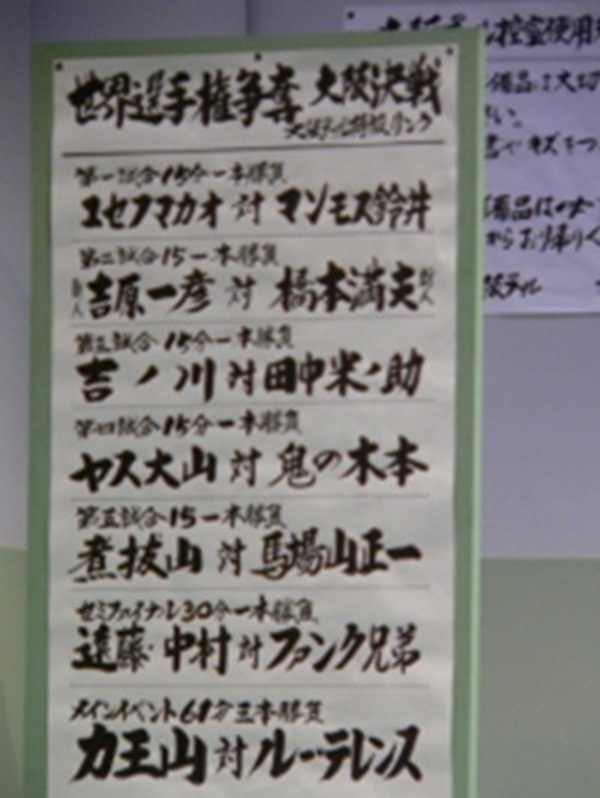 世界選手権争奪 大阪決戦
大阪プール特設リンク
第一試合15分一本勝負
ユセフマカオ 対 マンモス鈴井
第二試合15一本勝負
新人 吉原一彦 対 橋本満夫 新人
第三試合15分一本勝負
吉ノ川 対 田中米ノ助
第四試合15分一本勝負
ヤス大山 対 鬼の木本
第五試合15一本勝負
煮抜山 対 馬場山正一
セミファイナル30分一本勝負
遠藤・中村 対 ファンク兄弟
メインイベント61分三本勝負
力王山 対 ルーテレンス
控室使用
備品は大切
さい。
書やキズをつ
備品は
からお帰りく